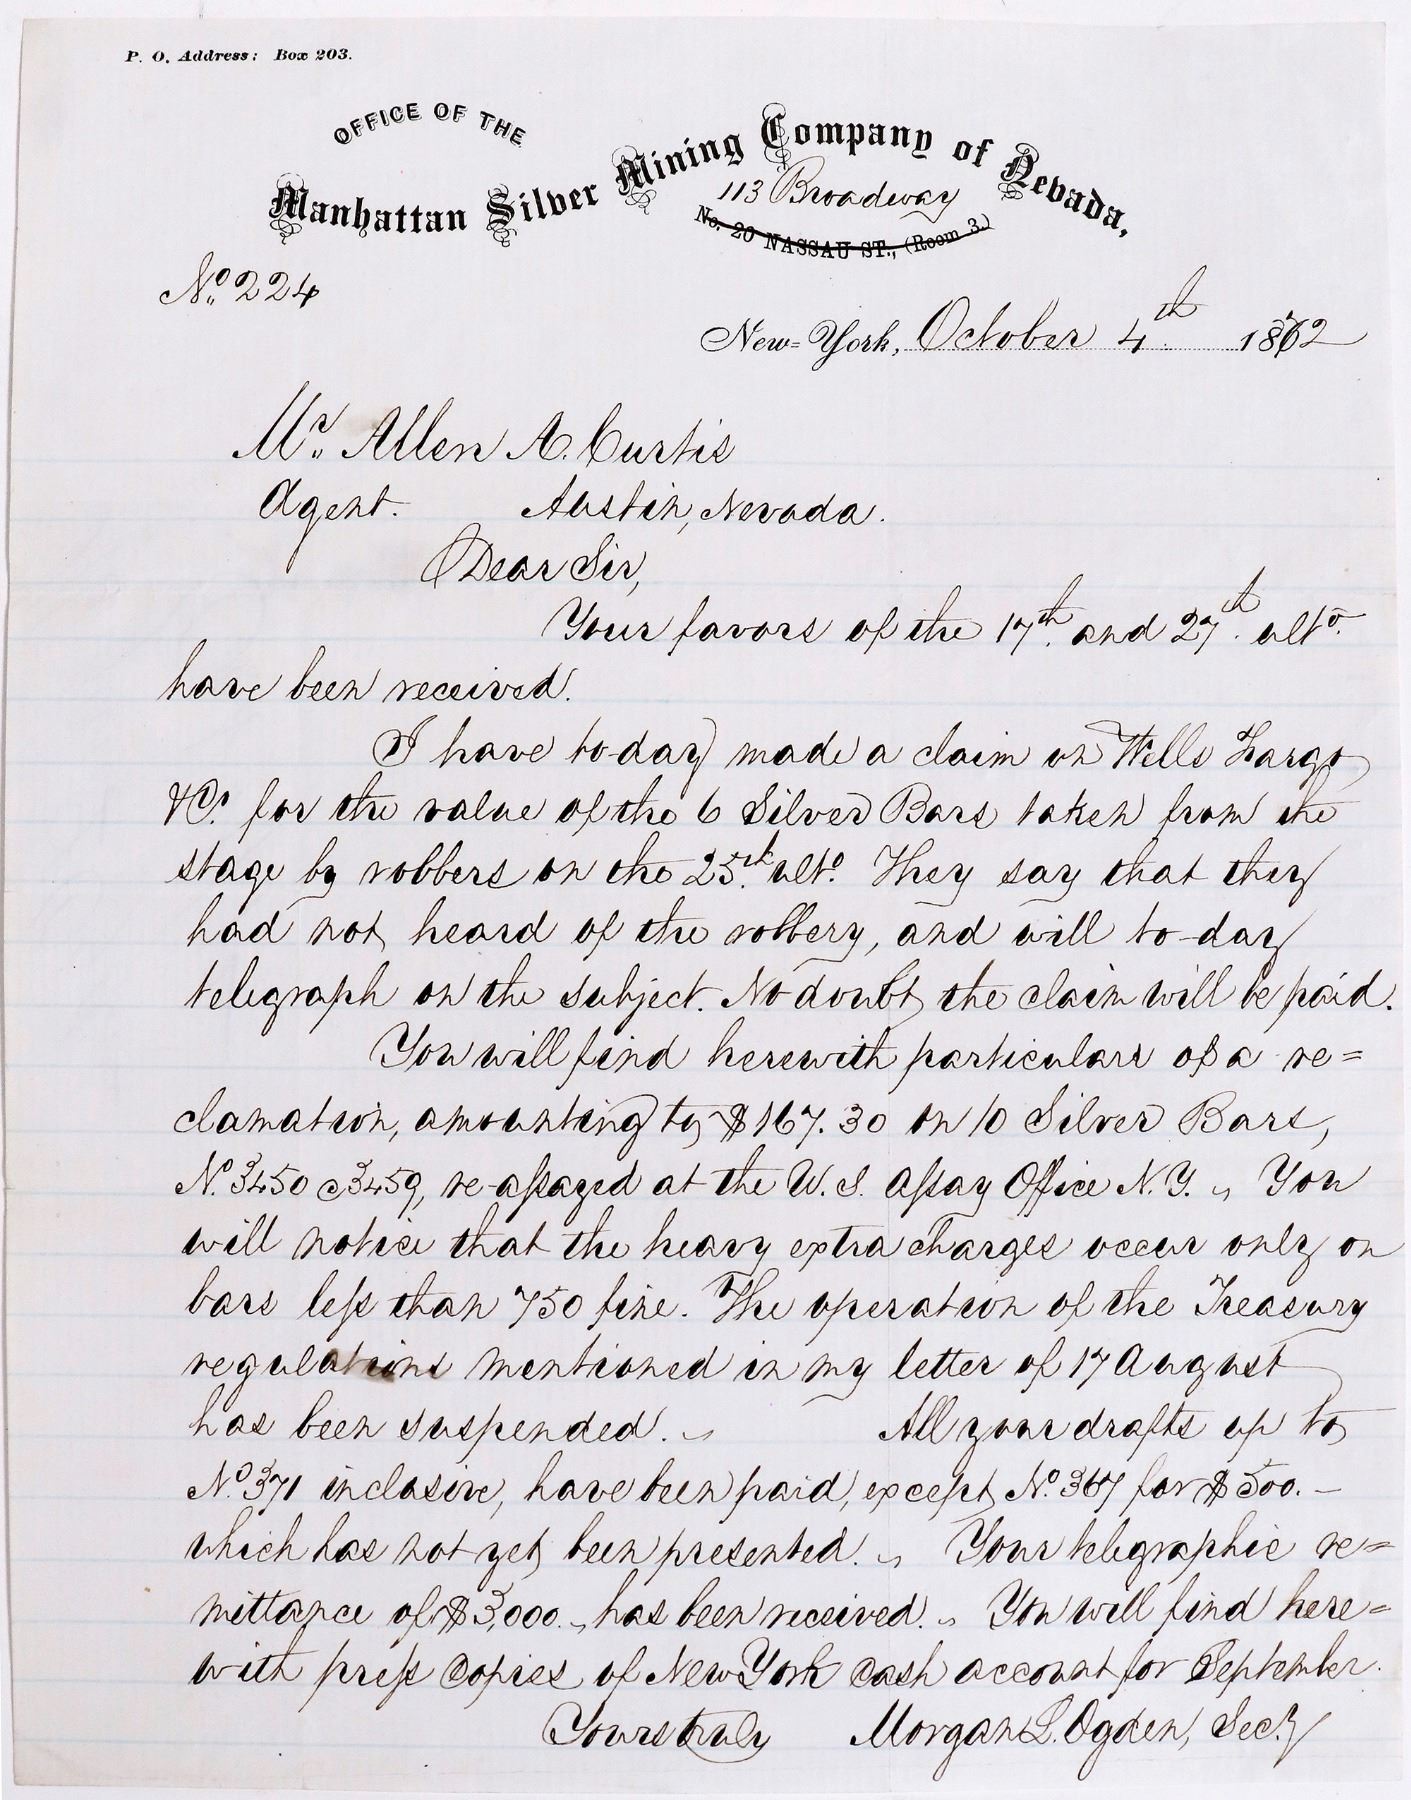 P. O. Address: Box 203.
OFFICE OF THE
Manhattan Silver Mining Company of Nevada,
113 Broadway
No. 20 NASSAU ST., (Room 3.)
No. 224
New-York, October 4th 1872
Mr. Allen A. Curtis
Agent. Austin, Nevada.
Dear Sir,
Your favors of the 17th and 27th ulto.
have been received.
I have to-day made a claim on Wells Fargo
&Co. for the value of the 6 Silver Bars taken from the
stage by robbers on the 25th ulto. They say that they
had not heard of the robbery, and will to-day
telegraph on the subject. No doubt the claim will be paid.
You will find herewith particulars of a re=
clamation, amounting to $167.30 on 10 Silver Bars,
No. 3450 @ 3459, re-assayed at the U. S. Assay Office N. Y. „ You
will notice that the heavy extra charges occur only on
bars less than 750 fine. The operation of the Treasury
regulations mentioned in my letter of 17 August
has been suspended. „ All your drafts up to
No. 371 inclusive, have been paid, except No. 367 for $500.–
which has not yet been presented. „ Your telegraphic re=
mittance of $3,000. „ has been received. „ You will find here=
with press copies of New York cash account for September.
Yours truly Morgan L. Ogden, Secy